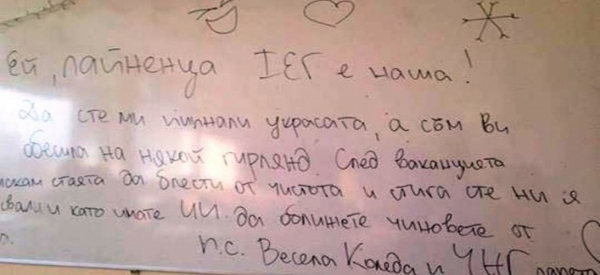 Ей, лайненца IЕГ е наша!
Да сте ми пипнали украсата, а съм ви
обесила на някой гирлянд. След ваканцията
искам стаята да блести от чистота и стига сте ни я
като имате ЧИ. да болинете чиновете от
п.с. Весела Коледа и ЧНГ